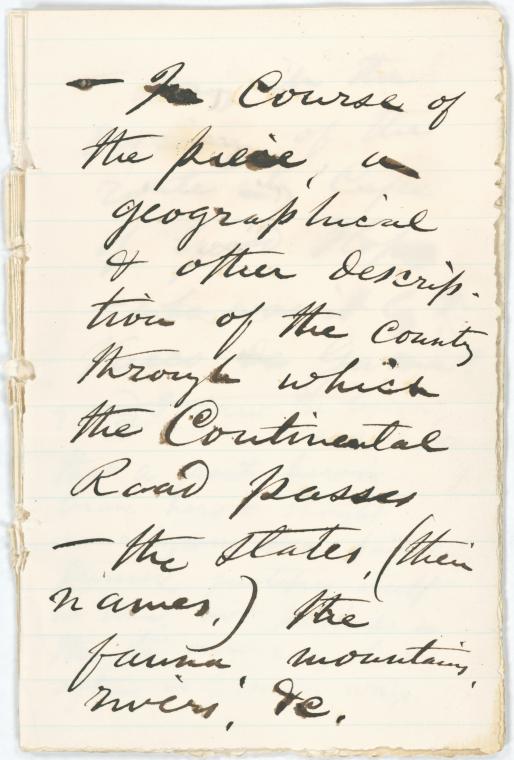 — In course of
the pieice, a
geographical
& other descrip-
tion of the county
through which
the Continental
Road passes
— the states, (their
names,) the
fauna, mountains,
rivers, &c.